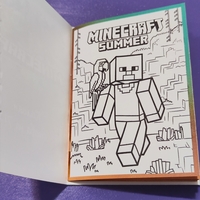 MINECRAFT
SUMMER